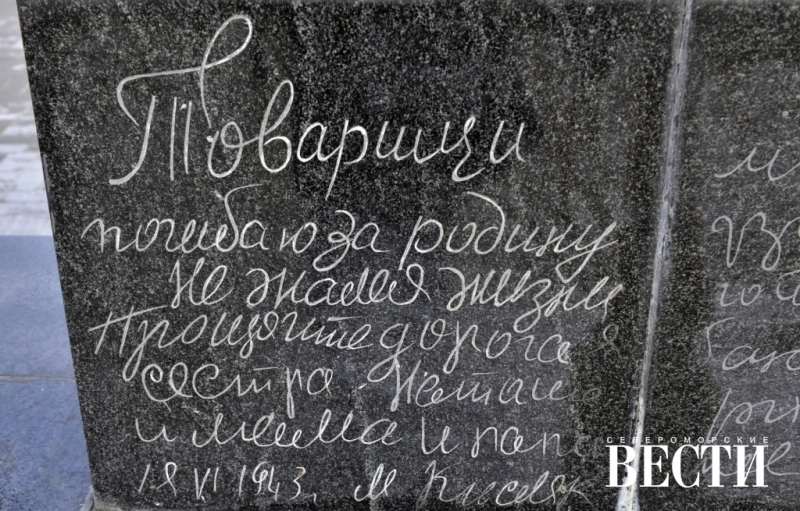 Товарищи
погибаю за родину
не жалея жизни
Прощяйте дорогая
сестра Наташа
и мама и папа
18 VI 1943г. М Кисляк
СЕВЕРОМОРСКИЕ
ВЕСТИ